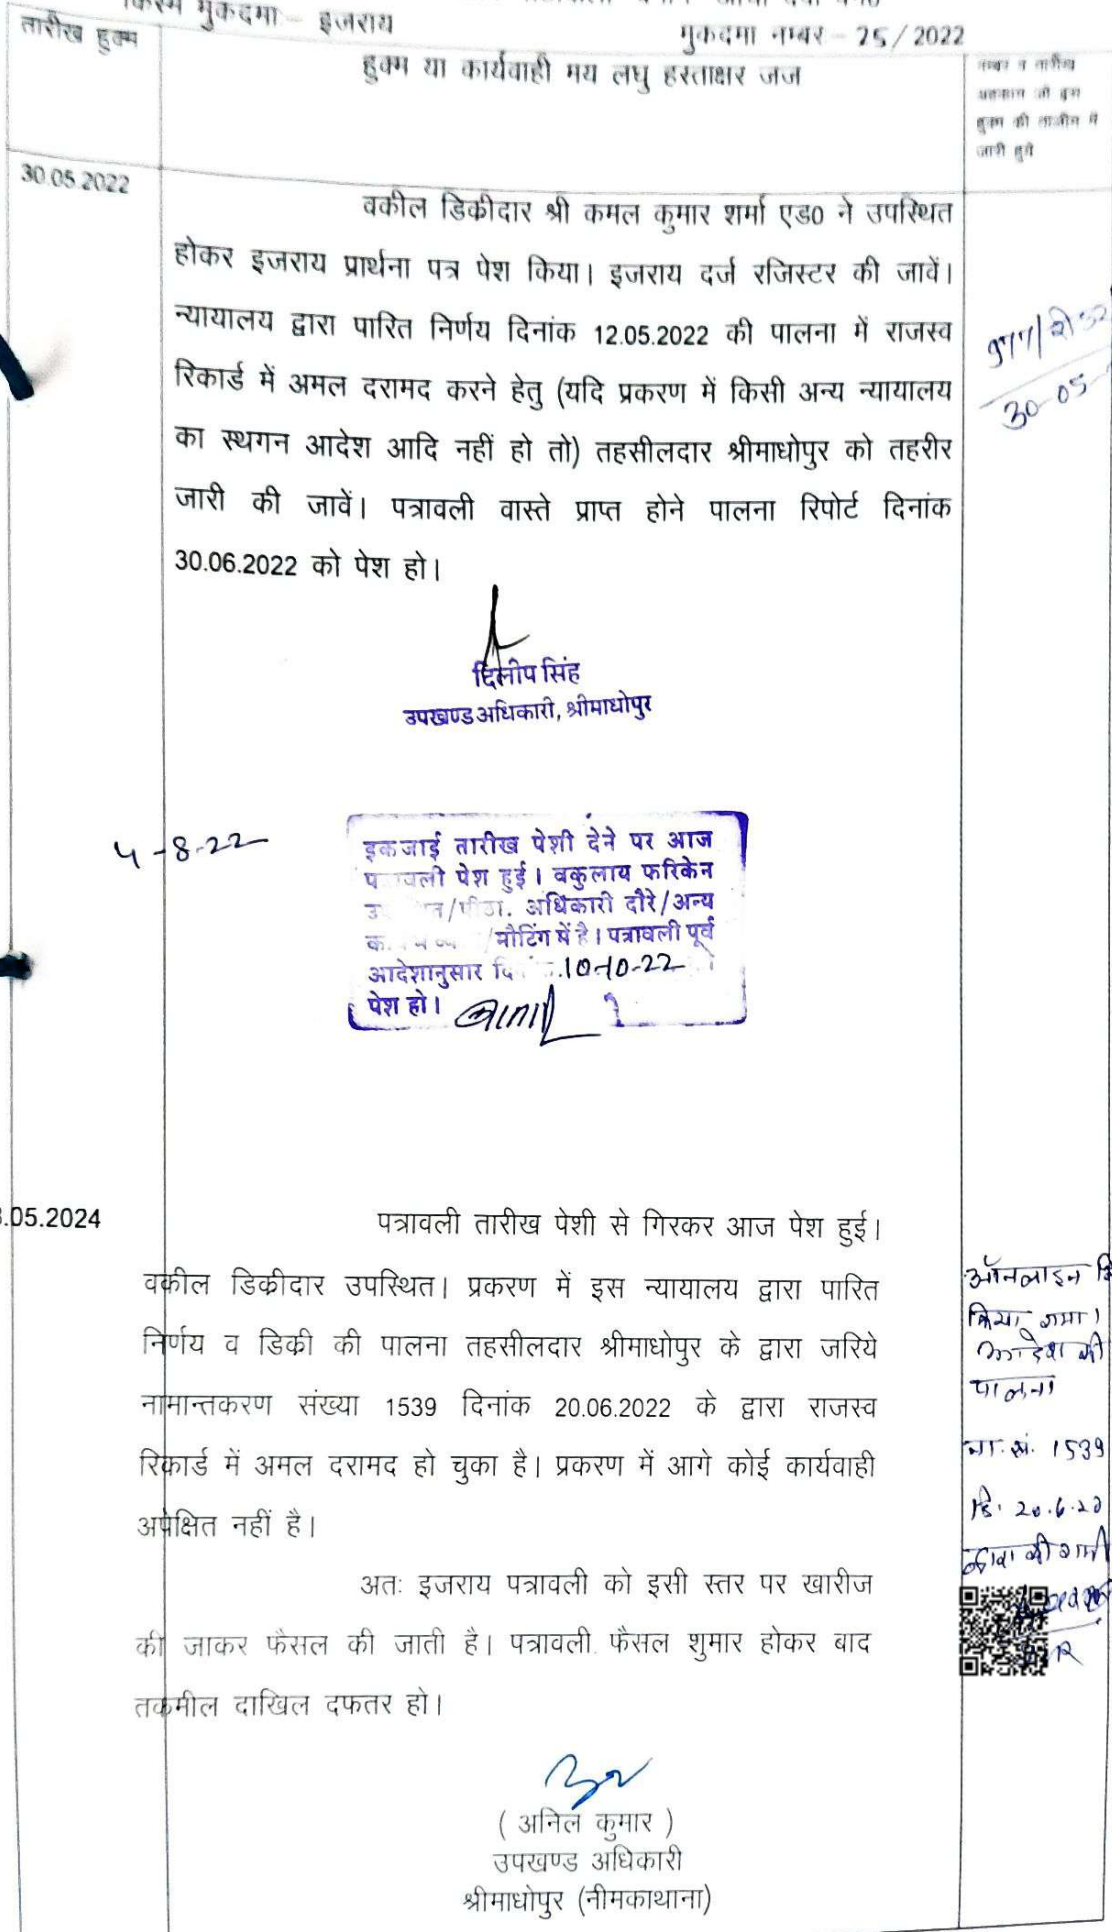 किस्म मुकदमा:- इजराय
मुकदमा नम्बर - 25/2022
तारीख हुक्म
हुक्म या कार्यवाही मय लघु हस्ताक्षर जज
नम्बर व तारीख
अहकाम जो इस
हुक्म की तामील में
जारी हुये
30.05.2022
वकील डिकीदार श्री कमल कुमार शर्मा एड0 ने उपस्थित
होकर इजराय प्रार्थना पत्र पेश किया। इजराय दर्ज रजिस्टर की जावें।
न्यायालय द्वारा पारित निर्णय दिनांक 12.05.2022 की पालना में राजस्व
रिकार्ड में अमल दरामद करने हेतु (यदि प्रकरण में किसी अन्य न्यायालय
का स्थगन आदेश आदि नहीं हो तो) तहसीलदार श्रीमाधोपुर को तहरीर
जारी की जावें। पत्रावली वास्ते प्राप्त होने पालना रिपोर्ट दिनांक
30.06.2022 को पेश हो।
30-05-
दिलीप सिंह
उपखण्ड अधिकारी, श्रीमाधोपुर
4-8-22
इकजाई तारीख पेशी देने पर आज
पेश हुई। वकुलाय फरिकेन
अधिकारी दौरे/अन्य
/मीटिंग में है। पत्रावली पूर्व
आदेशानुसार 10-10-22
पेश हो।
.05.2024
पत्रावली तारीख पेशी से गिरकर आज पेश हुई।
वकील डिकीदार उपस्थित। प्रकरण में इस न्यायालय द्वारा पारित
निर्णय व डिकी की पालना तहसीलदार श्रीमाधोपुर के द्वारा जरिये
नामान्तकरण संख्या 1539 दिनांक 20.06.2022 के द्वारा राजस्व
रिकार्ड में अमल दरामद हो चुका है। प्रकरण में आगे कोई कार्यवाही
अपेक्षित नहीं है।
अतः इजराय पत्रावली को इसी स्तर पर खारीज
की जाकर फैसल की जाती है। पत्रावली फैसल शुमार होकर बाद
तकमील दाखिल दफतर हो।
ऑनलाइन
किया गया।
आदेश की
पालना
ना. सं. 1539
दि. 20.6.22
( अनिल कुमार )
उपखण्ड अधिकारी
श्रीमाधोपुर (नीमकाथाना)